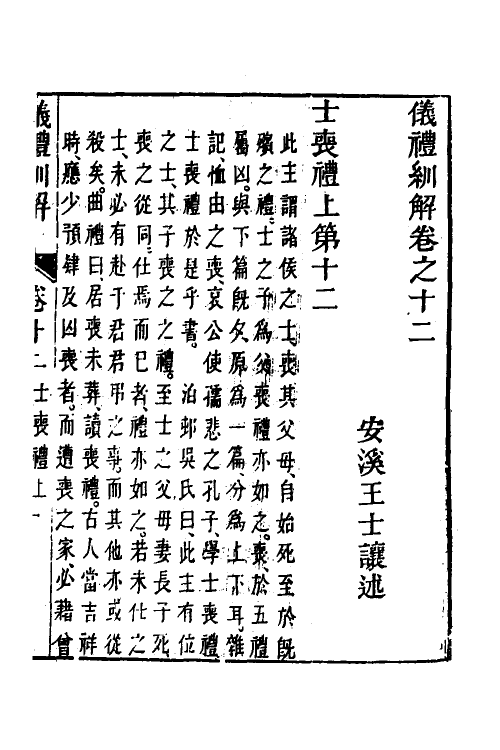 儀禮紃解卷之十二
安溪王士讓述
士喪禮上第十二
此主謂諸侯之士喪其父母自始死至於旣
殯之禮士之子為父喪禮亦如之喪於五禮
屬凶與下篇旣夕原為一篇分為上下耳雜
記恤由之喪哀公使孺悲之孔子學士喪禮
士喪禮於是乎書。 泊邨吳氏曰此主有位
之士其子喪之之禮。至士之父母妻長子死
喪之從同仕焉而已者禮亦如之。若未仕之
士未必有赴于君君弔之事。而其他亦或從
殺矣。曲禮曰居喪未葬讀喪禮。古人當吉祥
時、廳少預肄及凶喪者。而遭喪之家必藉曾
儀禮紃解 卷十二 士喪禮上 一